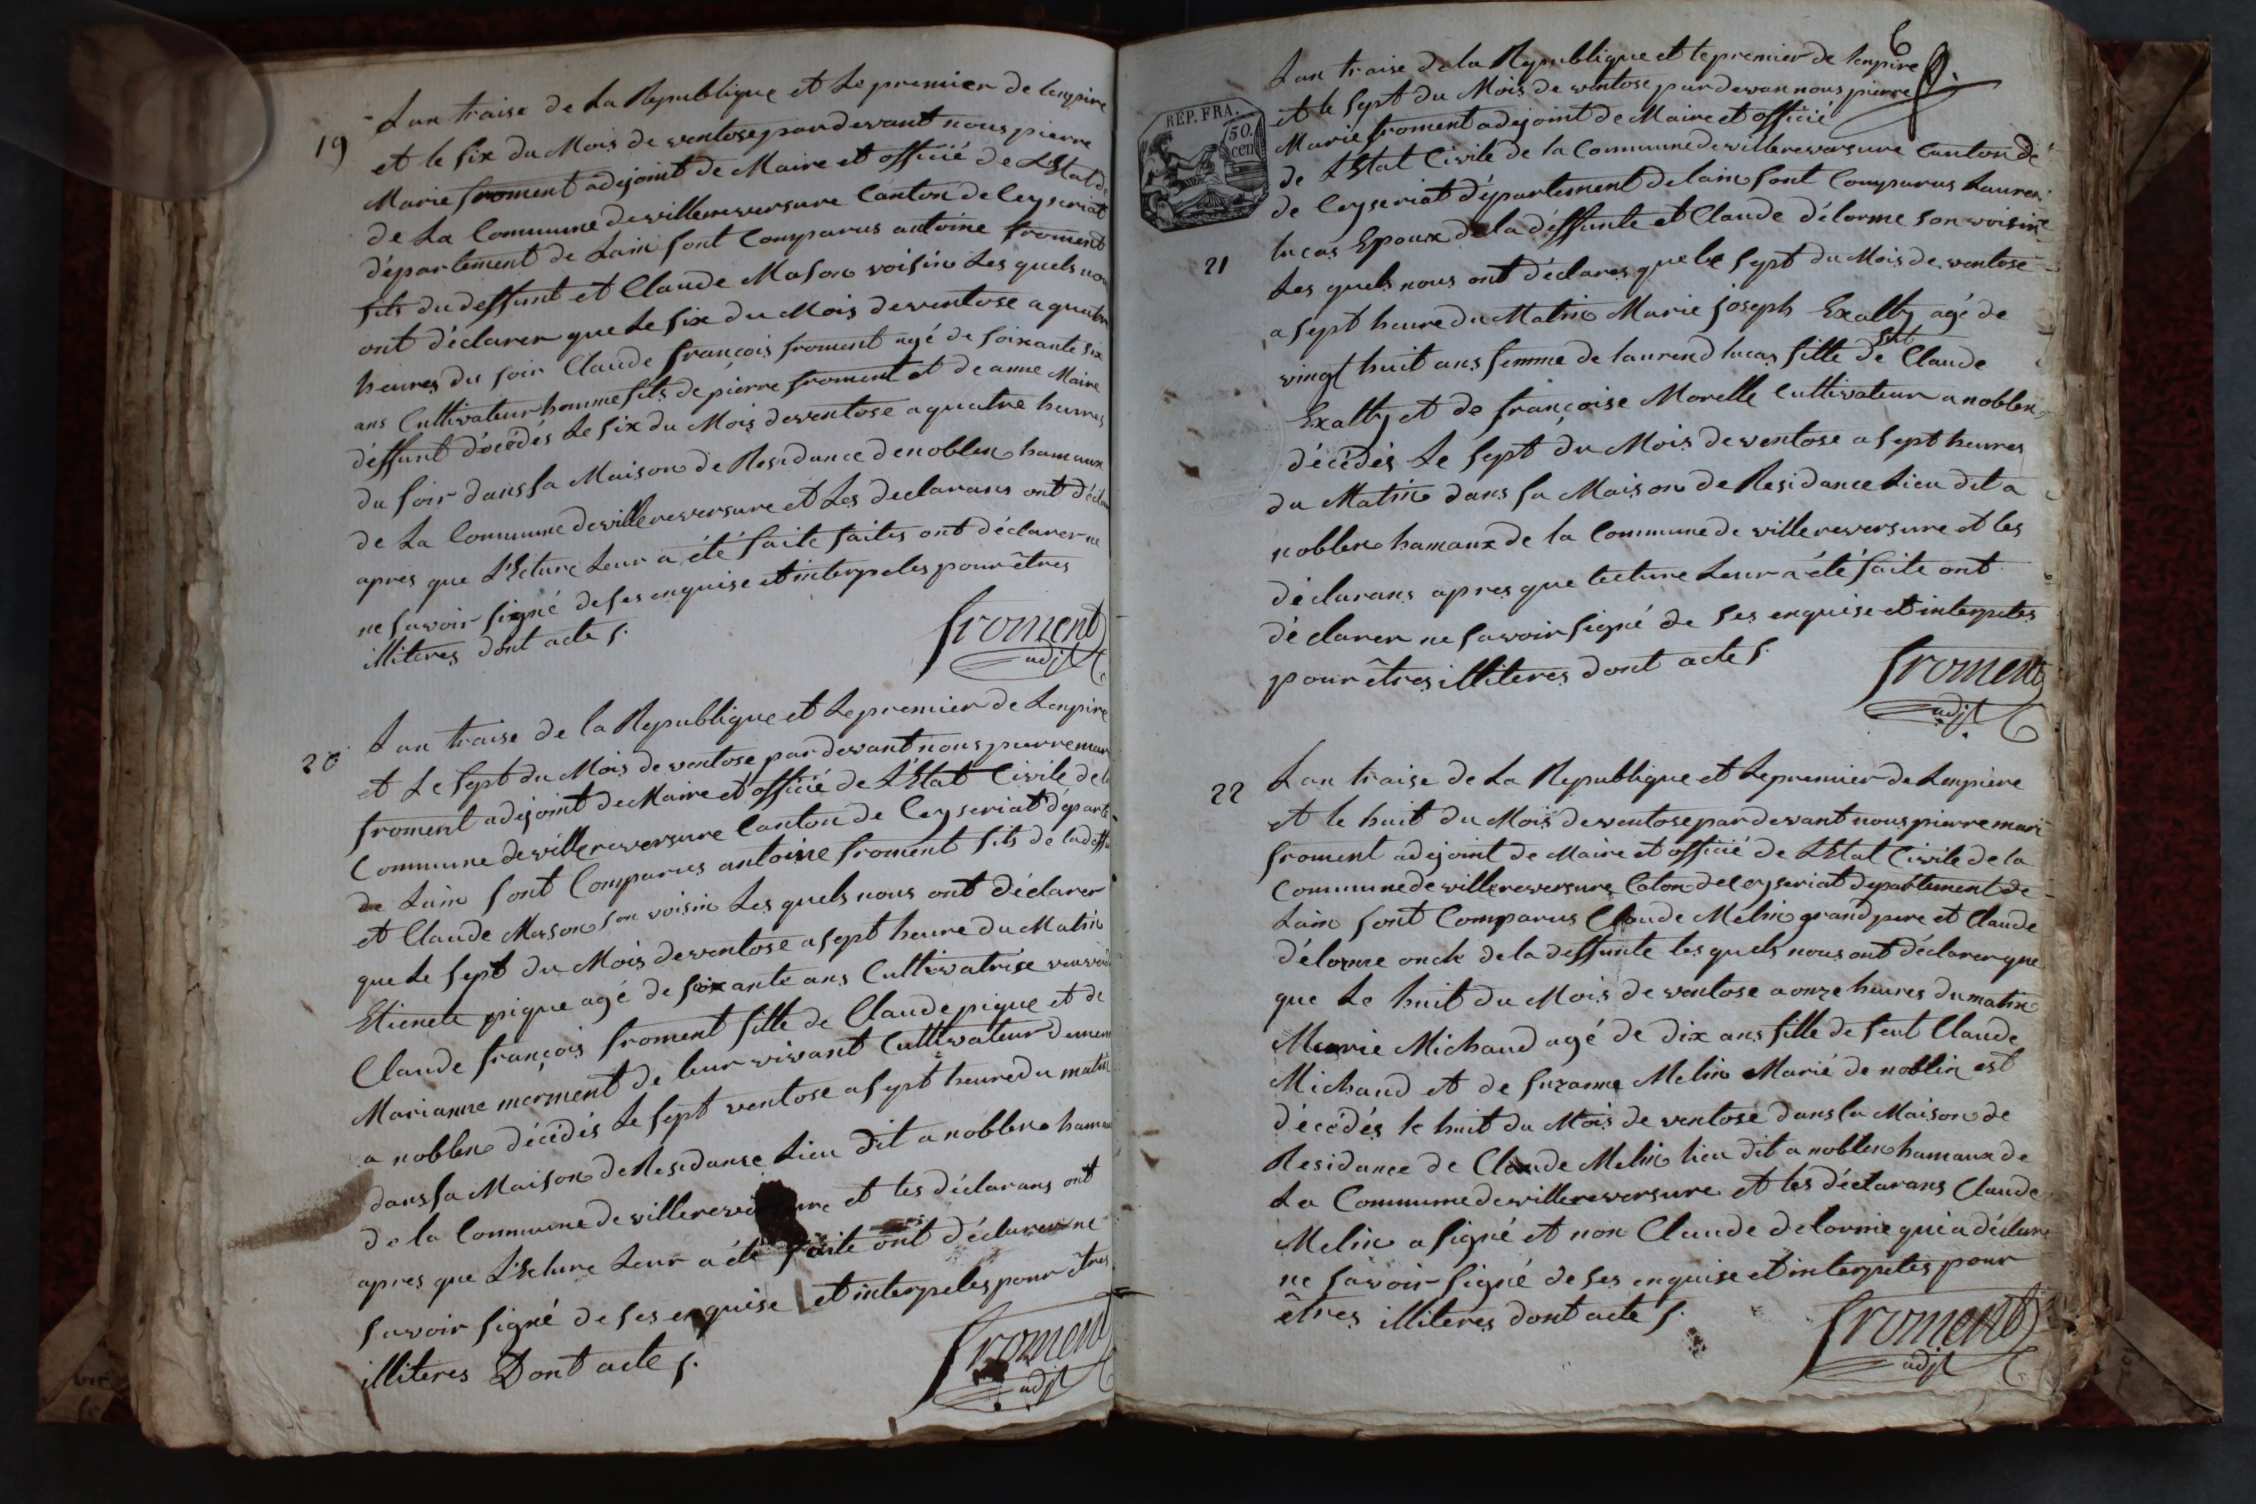 19
Lan traise de La Republique et Le premier de lenpire
et le six du Mois de ventose pardevant nous pierre
Marie froment adejoint de Maire et officié de L'Etat de
de La Commune devillereversure Canton de Ceyseriat
département de Lain sont Comparus antoine froment
fils du deffunt et Claude Mason voisin Les quels nous
ont déclarer que Le six du Mois deventose a quatre
heures du soir Claude françois froment agé de soixante six
ans Cultivateur homme fils de pierre froment et de anne Maire
déffunt décédés Le six du Mois deventose a quatre heures
du soir dans sa Maison de Residance denoblen hamaux
de La Commune devillereversure et Les declarans ont
apres que L'Ecture Leur a été faite faites ont déclarer ne
ne savoir signé de ses enquise et interpeles pour êtres
illiteres dont acte s.
froment
adjt
20
Lan traise de la Republique et Lepremier de Lenpire
et Le sept du Mois de ventose pardevant nous pierre mari
froment adejoint de Maire et officié de L'Etat Civile de la
Commune devillereversure Canton de Ceyseriat départe
de Lain sont Comparus antoine froment fils de ladeffu
et Claude Mason son voisin Les quels nous ont déclarer
que Le sept du Mois deventose a sept heure du Matin
Etienete pique agé de soixante ans Cultivatrise
Claude françois froment fille de Claude pique et de
Marianne morment de leur vivant Cultivateur
a noblen décédés Le sept ventose a sept heure du matin
dans sa Maison de Residanse Lieu dit a noblen hamau
de la Commune de villereversure et les déclarans ont
apres que L'Ecture Leur a été faite ont déclarer ne
savoir signé de ses enquise et interpeles pour êtres
illiteres Dont acte s.
froment
adjt
6
REP. FRA.
50.
cen
Lan traise dela Republique et lepremier de lenpire
et le sept du Mois de ventose par devan nous pierre
Marie froment adejoint de Maire et officié
de L'Etat Civile de la Commune devillereversure Canton dé
de Ceyseriat département delain sont Comparus Lauren
lucas Epoux de la déffunte et Claude délorme son voisin
21
Les quels nous ont déclares que le sept du Mois de ventose
a sept heure du Matin Marie joseph Exalty agé de
vingt huit ans femme de laurend lucas fille de feut Claude
Exalty et de françoise Morelle Cultivateur a noblen
décédés Le sept du Mois de ventose a sept heures
du Matin dans sa Maison de Residance Lieu dit a
noblen hamaux de la Commune de villereversure et les
déclarans apres que lecture Leur a été faite ont
déclarer ne savoir signé de ses enquise et interpeles
pour êtres illiteres dont acte s.
froment
adjt
22
Lan traise de La Republique et Lepremier de Lenpiere
et le huit du Mois deventose pardevant nous pierre mari
froment adejoint de Maire et officié de L'Etat Civile de la
Commune de villereversure Caton de Ceyseriat departement de
Lain sont Comparus Claude Melin grand pere et Claude
délorme oncle de la deffunte les quels nous ont déclarer que
que Le huit du Mois de ventose a onze heures du matin
Marie Michaud agé de dix ans fille de feut Claude
Michaud et de suzanne Melin Marié de noblin est
décédés le huit du Mois de ventose dans la Maison de
Residance de Claude Melin lieu dit a noblen hamaux de
La Commune devillereversure et les déclarans Claude
Melin a signé et non Claude delorme qui a déclare
ne savoir signé de ses enquise et interpeles pour
êtres illiteres dont acte s.
froment
adjt